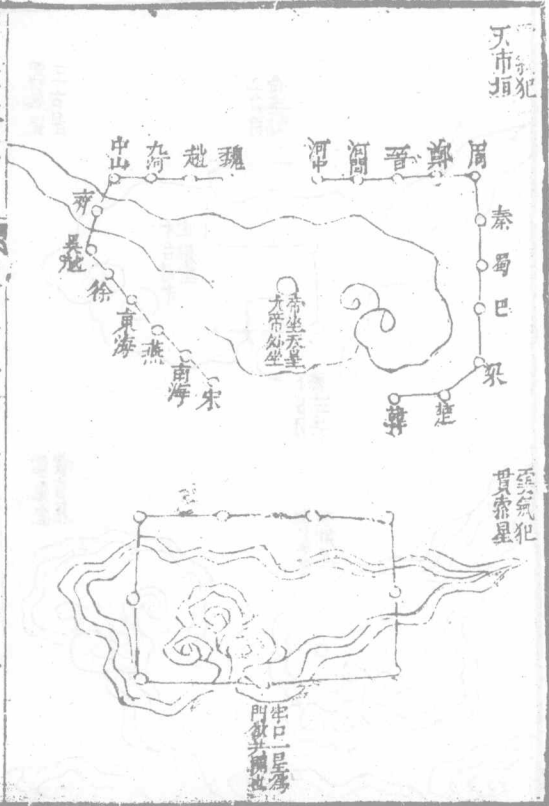 雲氣犯
天市垣
周
鄭
晉
河間
河中
魏
趙
九河
中山
齊
吳越
徐
東海
燕
南海
宋
秦
蜀
巴
梁
楚
韓
帝坐一星
大帝之坐
雲氣犯
貫索星
牢口一星為
門